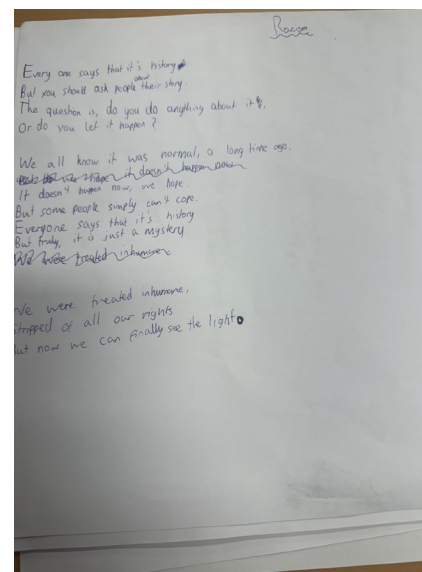 Racism
Every one says that it's history
But you should ask people about their story.
The question is, do you do anything about it?,
Or do you let it happen?
We all know it was normal, a long time ago.
we hope it doesn't happen now
It doesn't happen now, we hope.
But some people simply can't cope.
Everyone says that it's history
But truly, it is just a mystery
We were treated inhumane
We were treated inhumane,
stripped of all our rights
but now we can finally see the light.